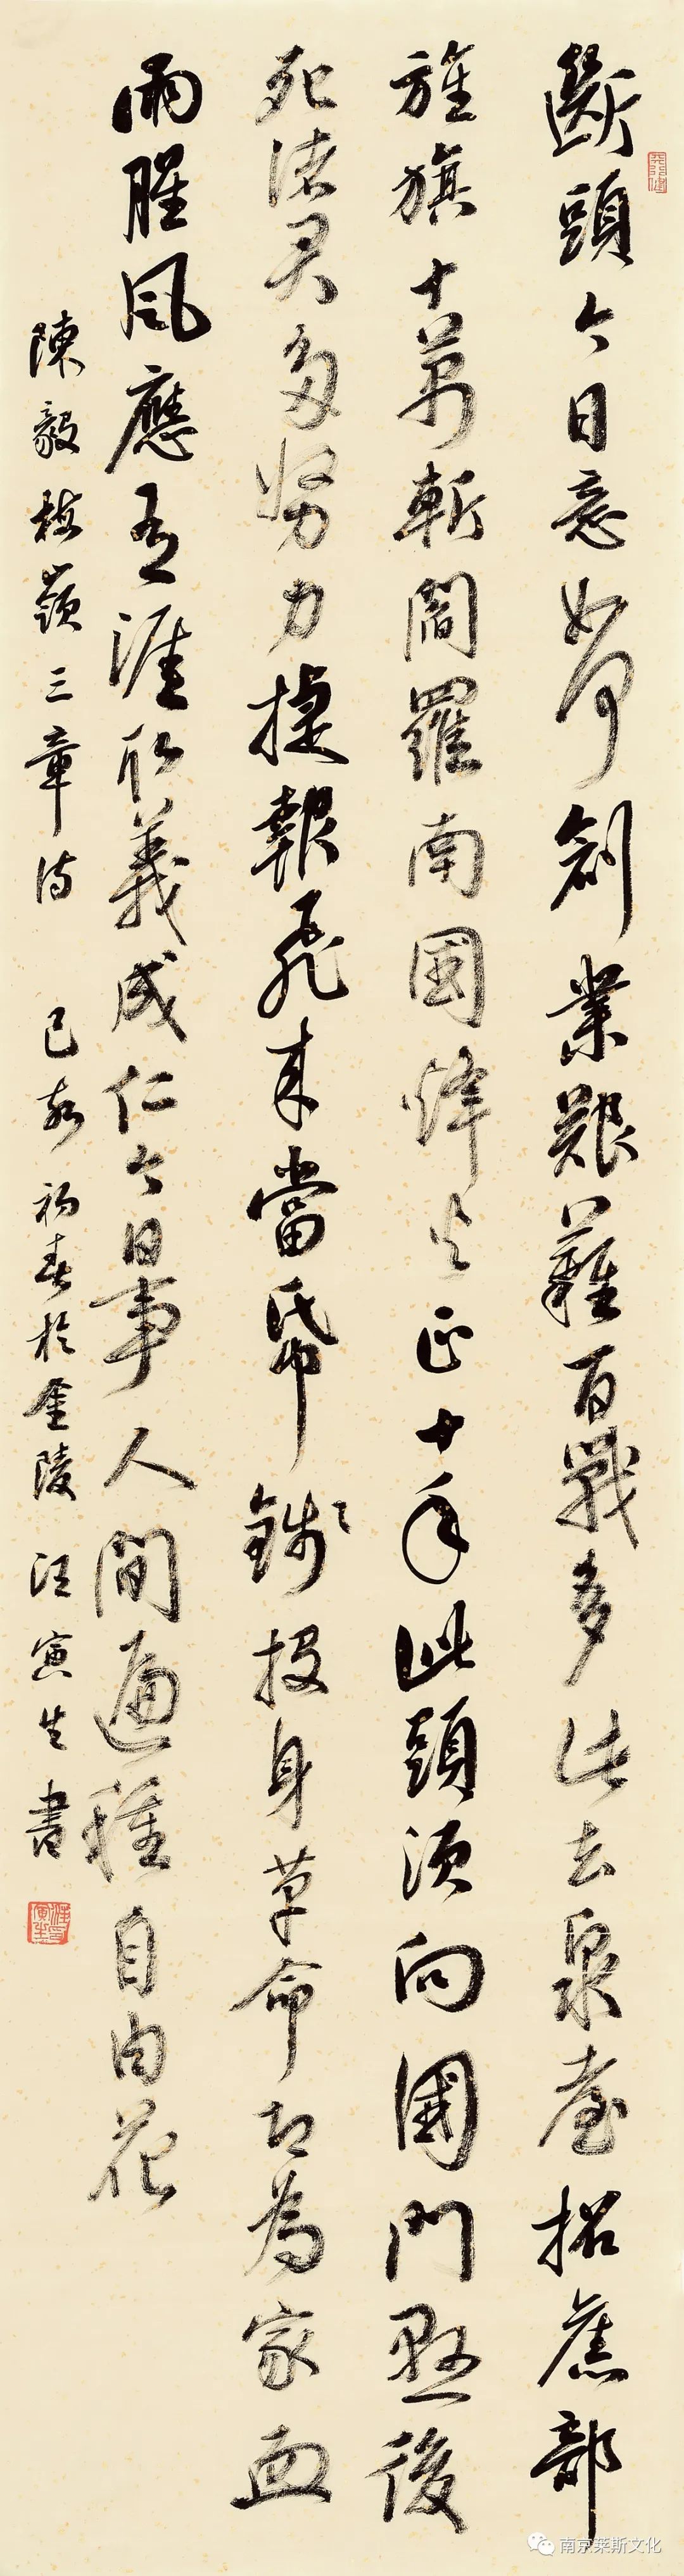 斷頭今日意如何創業艱難百戰多此去泉臺招舊部
旌旗十萬斬閻羅南國烽火正十年此頭須向國門懸後
死諸君多努力捷報飛來當紙錢投身革命即為家血
雨腥風應有涯取義成仁今日事人間遍種自由花
陳毅梅嶺三章詩 己亥初春於金陵 汪寅生書
南京莱斯文化